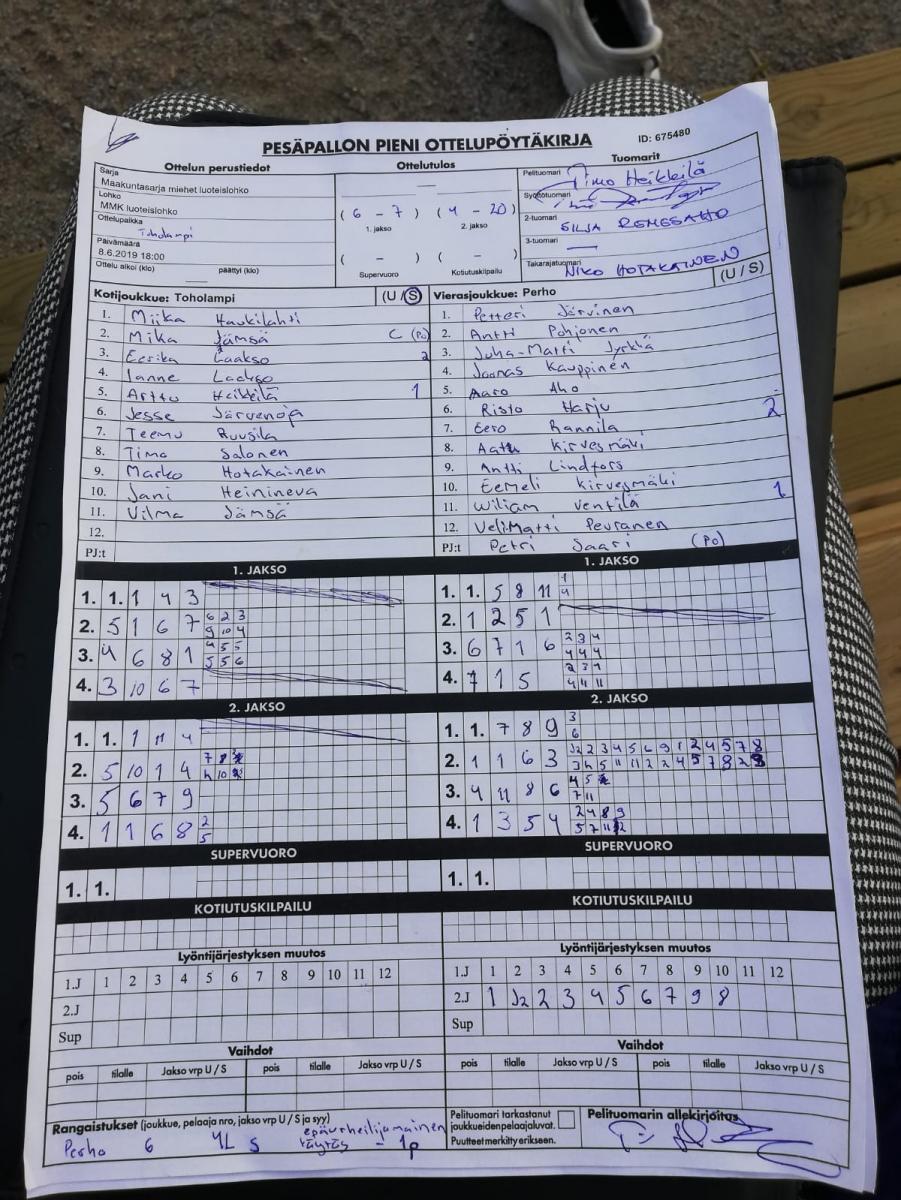 PESÄPALLON PIENI OTTELUPÖYTÄKIRJA
ID: 675480
Ottelun perustiedot
Sarja
Maakuntasarja miehet luoteislohko
Lohko
MMK luoteislohko
Ottelupaikka
Toholampi
Päivämäärä
8.6.2019 18:00
Ottelu alkoi (klo) päättyi (klo)
Ottelutulos
( 6 - 7 ) ( 4 - 20 )
1. jakso 2. jakso
( - ) ( - )
Supervuoro Kotiutuskilpailu
Tuomarit
Pelituomari Timo Heikkilä
Syöttötuomari
2-tuomari SILJA REMESAHO
3-tuomari
Takarajatuomari NIKO HOTAKAINEN
Kotijoukkue: Toholampi (U / S)
1. Miika Haukilahti
2. Mika Jämsä C (Po)
3. Eerika Laakso 2
4. Janne Laakso
5. Arttu Heikkilä 1
6. Jesse Järvenoja
7. Teemu Ruusila
8. Timo Salonen
9. Marko Hotakainen
10. Jani Heinineva
11. Vilma Jämsä
12.
PJ:t
Vierasjoukkue: Perho (U / S)
1. Petteri Järvinen
2. Antti Pohjonen
3. Juha-Matti Jyrkkä
4. Joonas Kauppinen
5. Aaro Aho
6. Risto Harju 2
7. Eero Rannila
8. Aatu Kirvesmäki
9. Antti Lindfors
10. Eemeli Kirvesmäki
11. Wiliam Ventilä 1
12. Veli-Matti Peuranen
PJ:t Petri Saari (Po)
1. JAKSO
1. 1. 1 4 3
2. 5 1 6 7 6 2 3
9 10 4
3. 4 6 8 1 4 5 5
5 5 6
4. 3 10 6 7
1. JAKSO
1. 1. 5 8 11 1
4
2. 1 2 5 1
3. 6 7 1 6 2 3 4
4 4 4
4. 7 1 5 2 3 1
4 4 11
2. JAKSO
1. 1. 1 11 4
2. 5 10 1 4 7 8
10
3. 5 6 7 9
4. 1 1 6 8 2
5
2. JAKSO
1. 1. 7 8 9 3
6
2. 1 1 6 3 12 2 3 4 5 6 9 1 2 4 5 7 8
5 11 11 2 2 4 5 7 8 2
3. 4 11 8 6 4 5
7 11
4. 1 3 5 4 2 4 8 9
5 7 11 12
SUPERVUORO
1. 1.
SUPERVUORO
1. 1.
KOTIUTUSKILPAILU
KOTIUTUSKILPAILU
Lyöntijärjestyksen muutos
1.J 1 2 3 4 5 6 7 8 9 10 11 12
2.J
Sup
Lyöntijärjestyksen muutos
1.J 1 2 3 4 5 6 7 8 9 10 11 12
2.J 1 12 2 3 4 5 6 7 9 8
Sup
Vaihdot
pois tilalle Jakso vrp U / S pois tilalle Jakso vrp U / S
Vaihdot
pois tilalle Jakso vrp U / S pois tilalle Jakso vrp U / S
Rangaistukset (joukkue, pelaaja nro, jakso vrp U / S ja syy)
Perho 6 4L S epäurheilijamainen
täytäs - 1p
Pelituomari tarkastanut
joukkueidenpelaajaluvat.
Puutteet merkitty erikseen.
Pelituomarin allekirjoitus